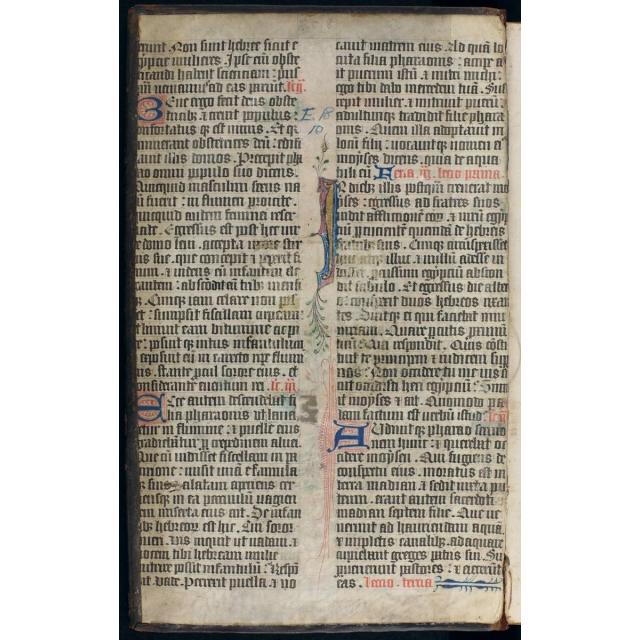 erunt. Non sunt hebree sicut e
gipcie mulieres. Ipse eni obste
tricandi habent scienciam: pus
qm veniamus ad eas pariut. lc ij
Bene ergo fecit deus obste
tricib: & crevit populus:
confortatus qz est nimis. Et q
timuerant obstetrices deu: edifi
cavit illis domos. Precepit pha
rao omni populo suo dicens.
Quicquid masculini sexus na
tu fuerit: in flumen proicite.
quicquid autem feminini reser
vate. Egressus est post hec vir
de domo levi. accepta uxore stir
pis sue. que concepit & peperit fi
lium. & videns eu infantem ele
gantem: abscodit eu trib mensi
bz. Cumqz iam celare non pos
set: sumpsit fiscellam cirpeam:
& linivit eam bitumine ac pi
ce: posuit qz intus infantulum:
& exposuit eu in carecto ripe flumi
nis. stante procul sorore eius. et
considerante eventum rei. lc iij
Ecce autem descendebat fi
lia pharaonis ut lavare
tur in flumine: & puelle eius
gradiebantur per crepidinem alvei.
Que cu vidisset fiscellam in pa
pirione: misit una e famula
bz suis & allatam aperiens cer
nensqz in ea parvulu vagien
tem miserta eius ait. De infan
tibz hebreorum est hic. Cui soror
pueri. Vis inquit ut vadam. &
vocem tibi hebream mulie
rem que nutrire possit infantulu: Respon
dit. Vade. Perrexit puella & vo
E. 18
10
cavit matrem eius. Ad quam lo
cuta filia pharaonis: accipe a
it puerum istu & nutri michi:
ego tibi dabo mercedem tua. Sus
cepit mulier. & nutrivit pueru:
adultumqz tradidit filie phara
onis. Quem illa adoptavit in
locu filii: vocavitqz nomen ei
moyses dicens. quia de aqua
tuli eu. Feria iij. lectio prima
In diebz illis postqua creverat mo
yses: egressus ad fratres suos.
vidit afflictione eorum. & viru egip
cium percucientem quenda de hebreis
fratribz suis. Cumqz circuspexisset
huc atqz illuc. & nullu adesse vi
disset. percussum egypciu abscon
dit sabulo. Et egressus die alte
ro: conspexit duos hebreos rixan
tes. Dixitqz ei qui faciebat iniu
riam. Quare percutis proximu
tuu: Qui respondit. Quis costi
tuit te principem & iudicem super
nos: Non occidere tu me vis sic
ut occidisti heri egypciu: Timu
it moyses & ait. Quomodo pa
lam factum est verbu istud. lc ij
Audivit qz pharao sermo
nem hunc: & querebat oc
cidere moysen. Qui fugiens de
conspectu eius. moratus est in
terra madian. & sedit iuxta pu
teum. Erant autem sacerdoti
madian septem filie. Que ve
nerunt ad hauriendam aquam.
& impletis canalibz. adaquare
cupiebant greges patris sui. Su
pervenerunt pastores: & eiecerunt
eas. lectio. tercia